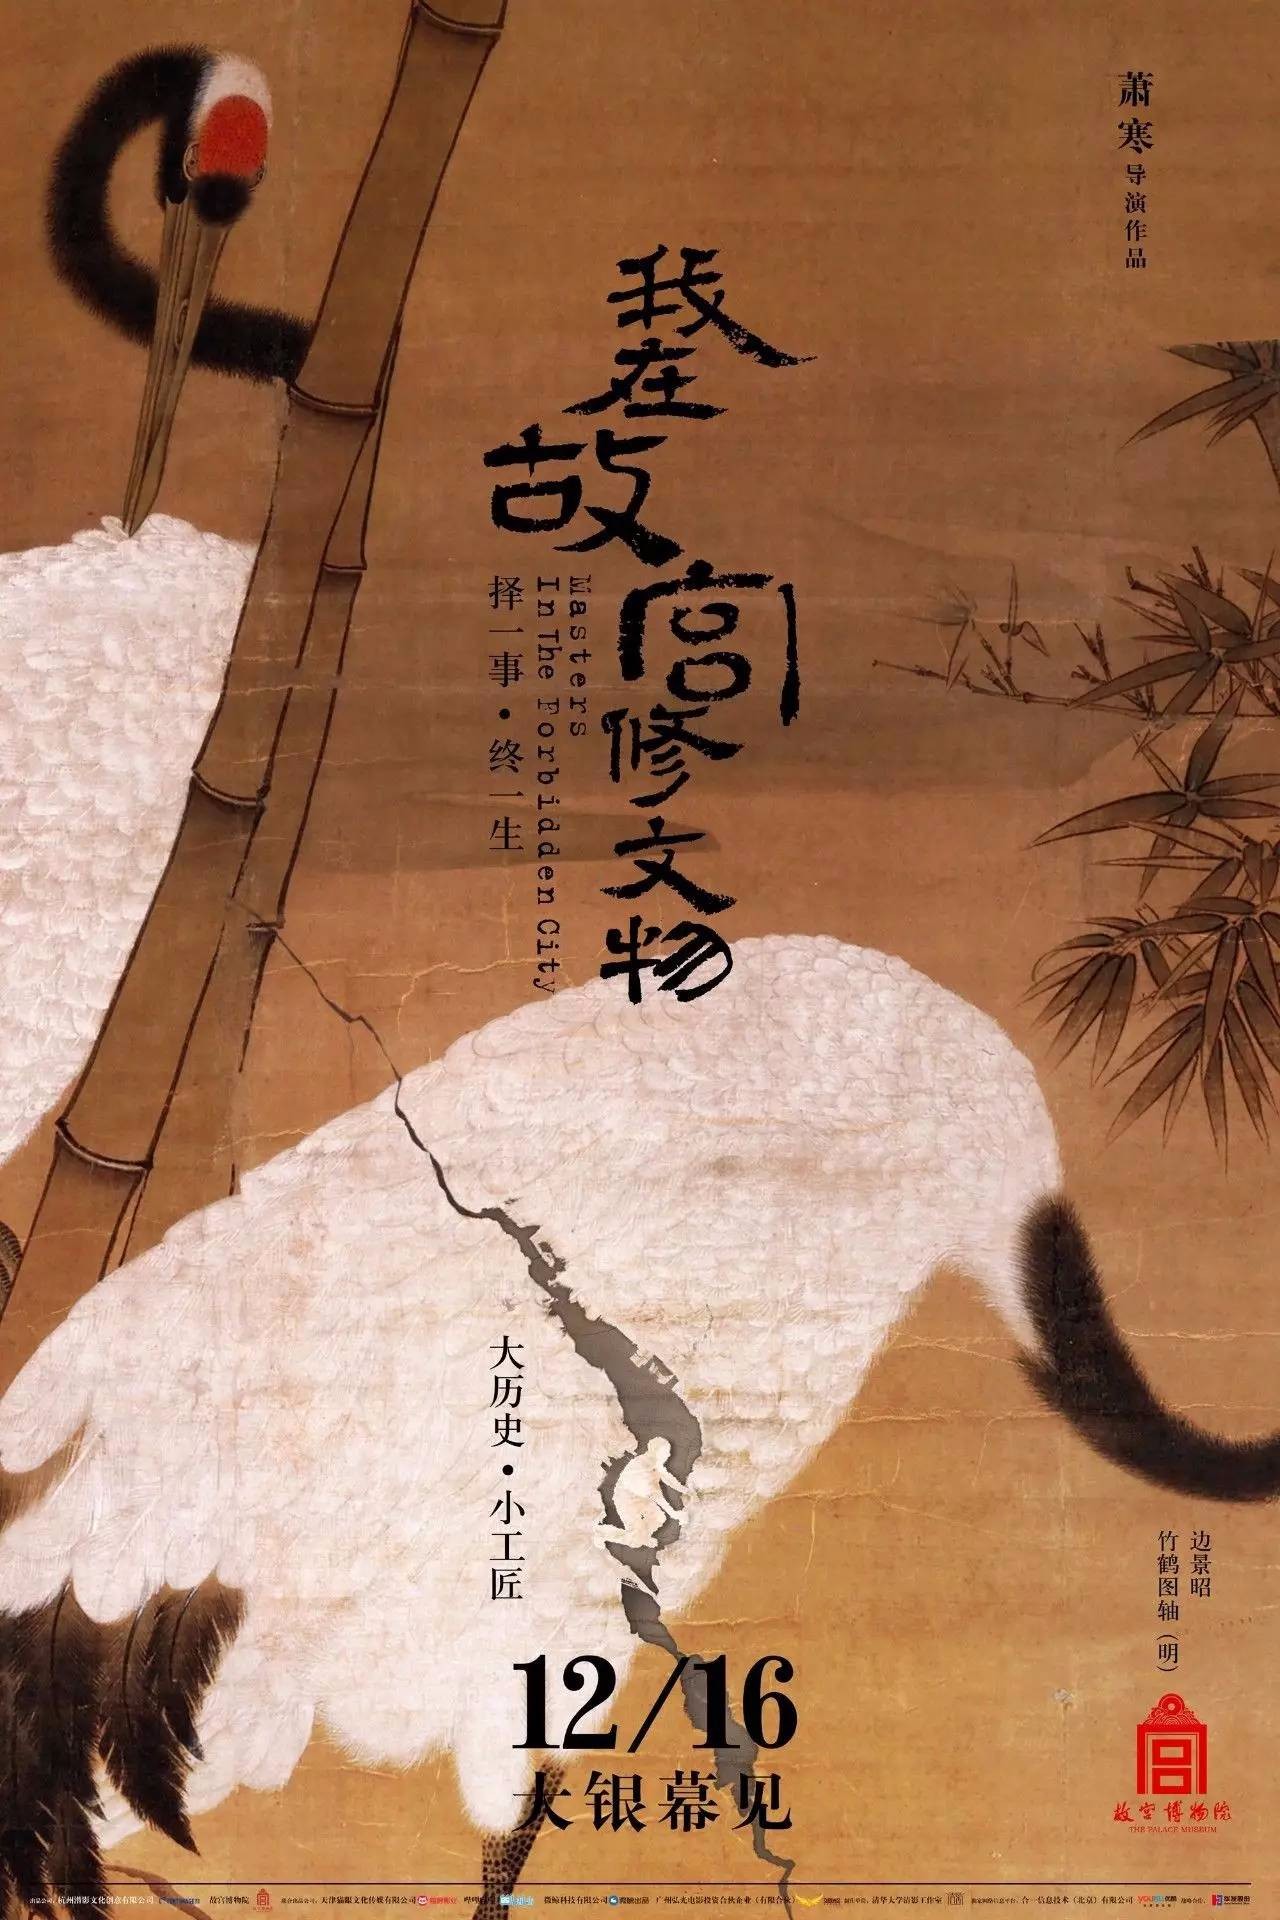 萧寒导演作品
我在故宫修文物
Masters
In The Forbidden City
择一事·终一生
大历史·小工匠
12/16
大银幕见
边景昭
竹鹤图轴（明）
故宫博物院
THE PALACE MUSEUM
出品公司：杭州潜影文化创意有限公司 故宫博物院 联合出品公司：天津猫眼文化传媒有限公司 微鲸科技有限公司 微鲸出品 广州弘光电影投资合伙企业（有限合伙） 制作单位：清华大学清影工作室 独家网络信息平台：合一信息技术（北京）有限公司 YOUKU 优酷 战略合作：